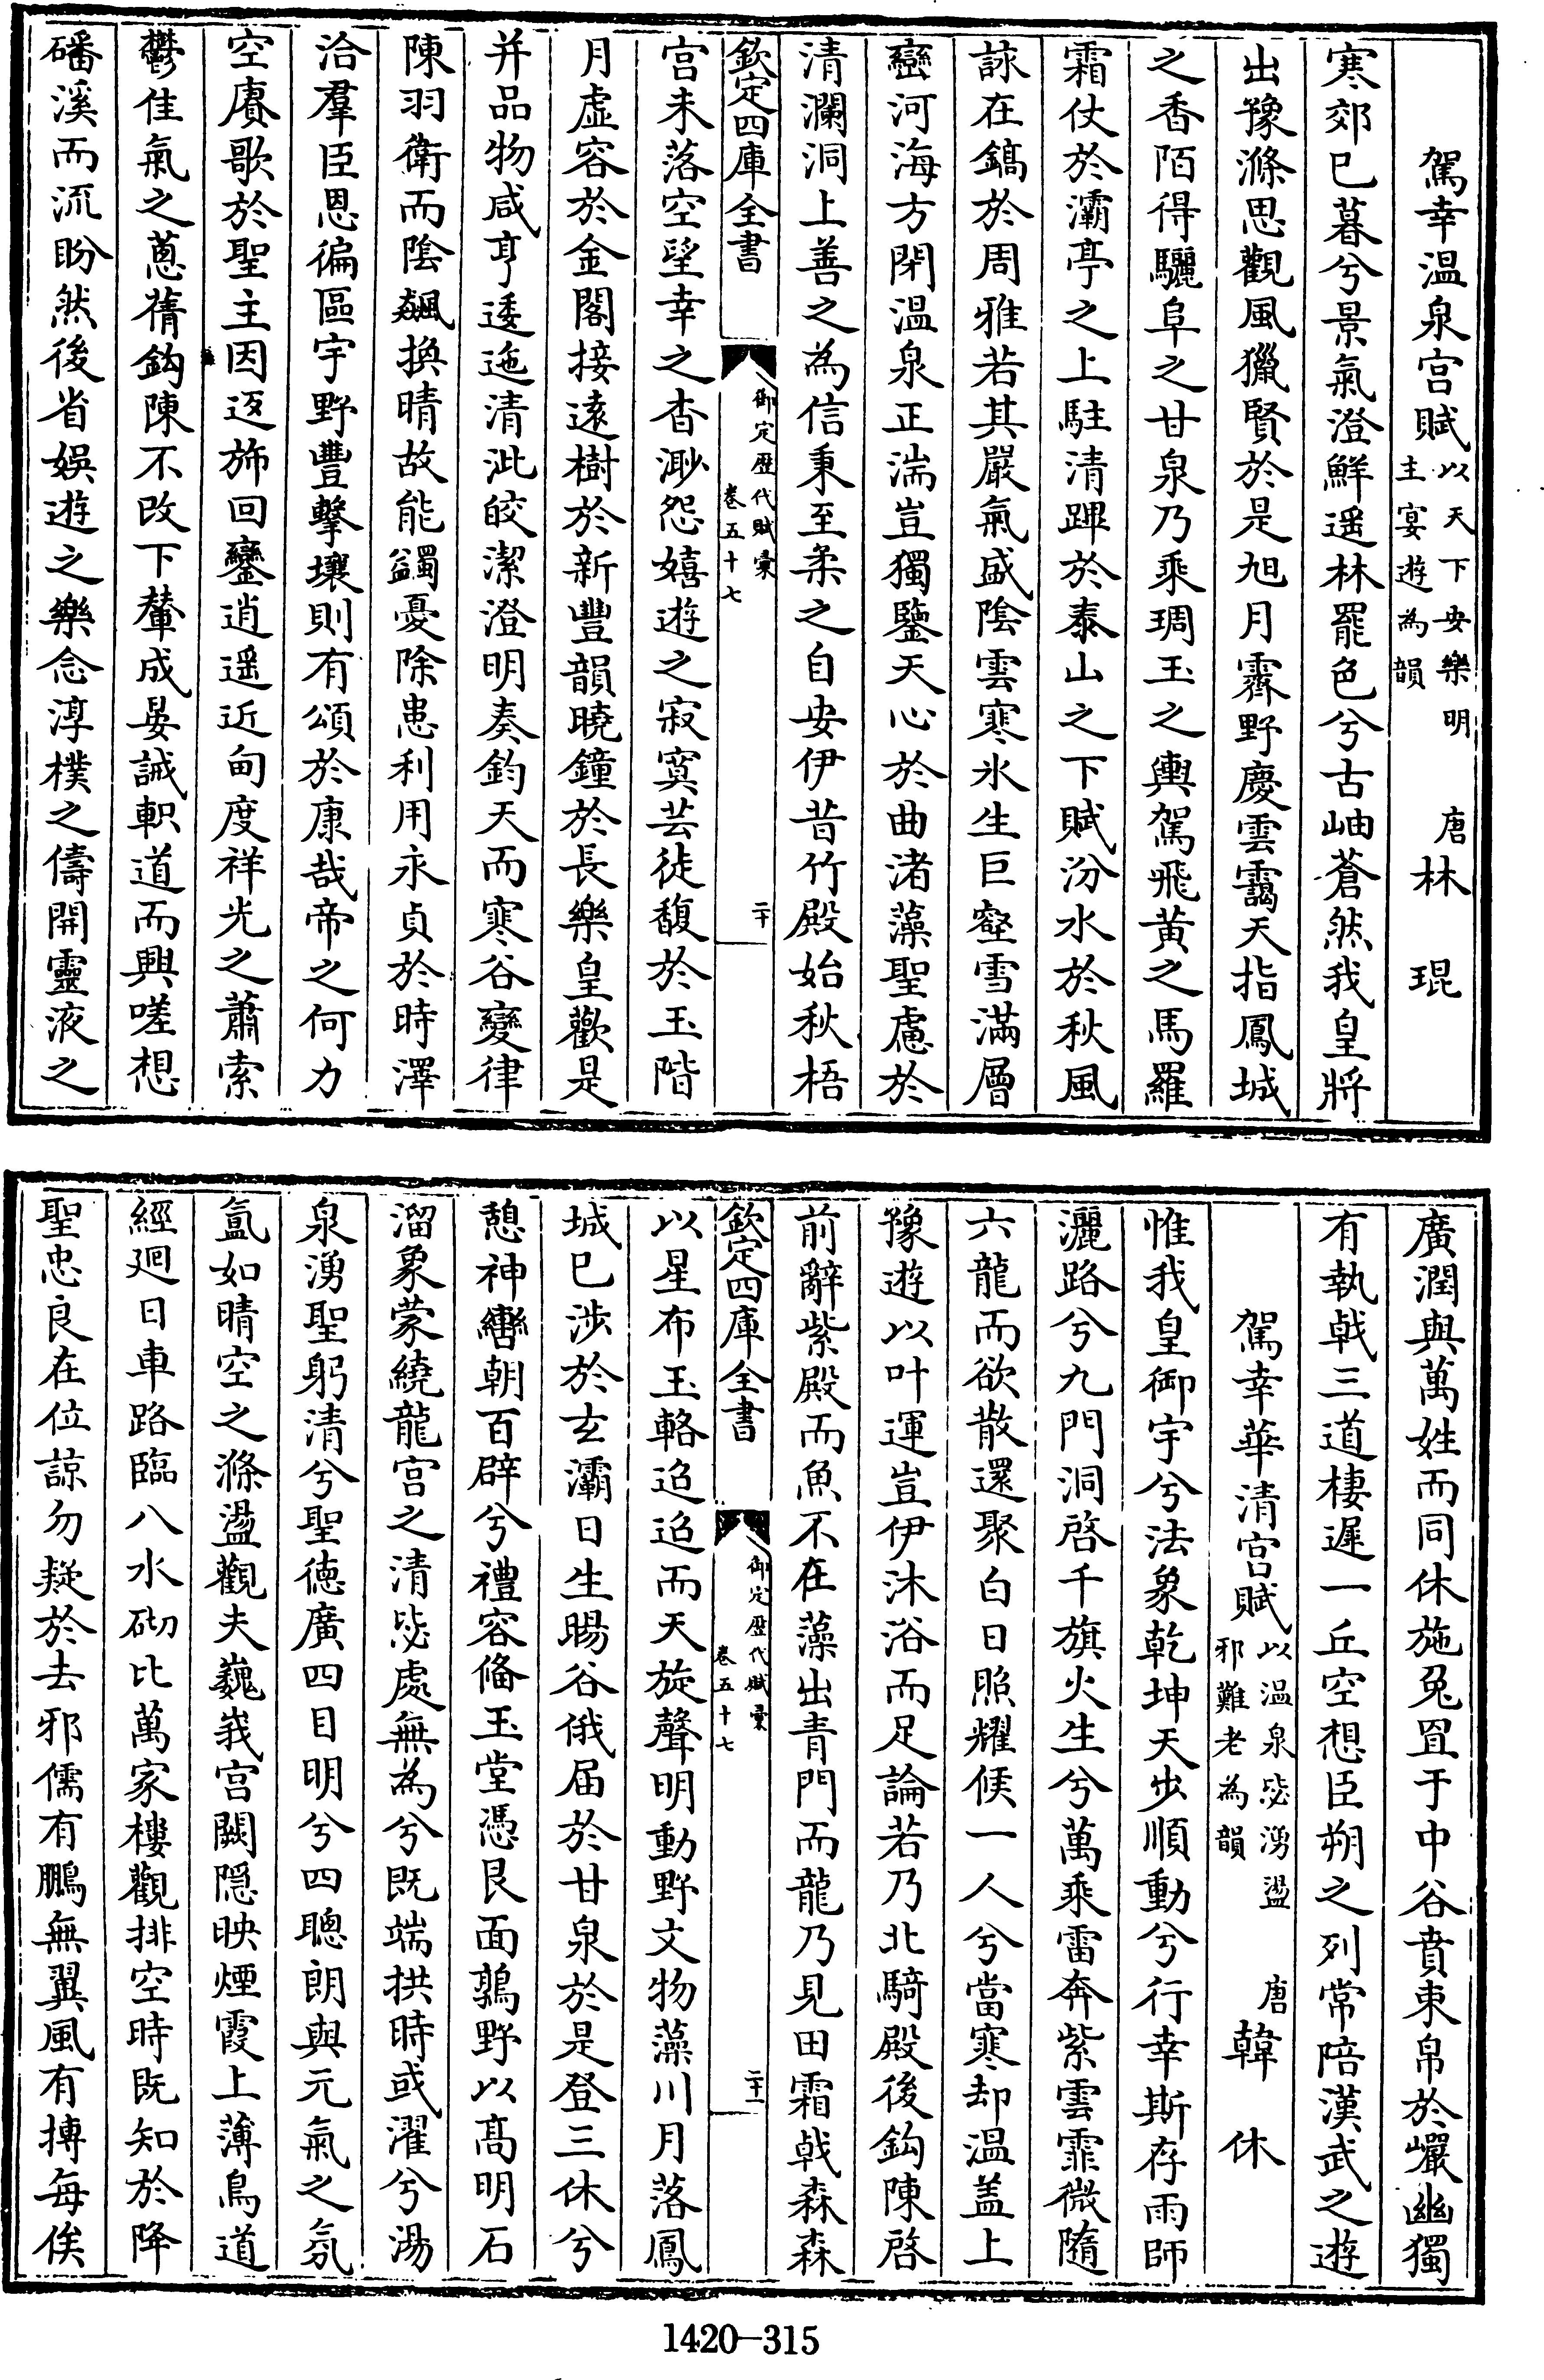 駕幸温泉宫賦以天下安樂明主宴遊為韻 唐林琨
寒郊已暮兮景氣澄鮮遥林罷色兮古岫蒼然我皇將
出豫滌思觀風獵賢於是旭月霽野慶雲靄天指鳳城
之香陌得驪阜之甘泉乃乘琱玉之輿駕飛黄之馬羅
霜仗於灞亭之上駐清蹕於泰山之下賦汾水於秋風
詠在鎬於周雅若其嚴氣盛陰雲寒氷生巨壑雪滿層
巒河海方閉温泉正湍豈獨鑒天心於曲渚藻聖慮於
清瀾洞上善之為信秉至柔之自安伊昔竹殿始秋梧
欽定四庫全書 御定歴代賦彙 卷五十七 二十
宫未落空望幸之杳渺怨嬉遊之寂寞芸徒馥於玉階
月虚容於金閣接逺樹於新豐韻曉鐘於長樂皇歡是
并品物咸亨逶迤清泚皎潔澄明奏鈞天而寒谷變律
陳羽衛而陰飇換晴故能蠲憂除患利用永貞於時澤
洽羣臣恩徧區宇野豐擊壤則有頌於康哉帝之何力
空賡歌於聖主因迓斾回鑾逍遥近甸度祥光之蕭索
鬱佳氣之蔥蒨鈎陳不改下輦成晏誡軹道而興嗟想
磻溪而流眄然後省娛遊之樂念淳樸之儔開靈液之
廣潤與萬姓而同休施兔罝于中谷賁束帛於巖幽獨
有執戟三道棲遲一丘空想臣朔之列常陪漢武之遊
駕幸華清宫賦以温泉毖湧盪邪難老為韻 唐韓休
惟我皇御宇兮法象乾坤天步順動兮行幸斯存雨師
灑路兮九門洞啓千旗火生兮萬乘雷奔紫雲霏微隨
六龍而欲散還聚白日照耀候一人兮當寒却温盖上
豫遊以叶運豈伊沐浴而足論若乃北騎殿後鈎陳啓
前辭紫殿而魚不在藻出青門而龍乃見田霜戟森森
欽定四庫全書 御定歴代賦彙 卷五十七 二十一
以星布玉輅迢迢而天旋聲明動野文物藻川月落鳳
城已涉於玄灞日生暘谷俄届於甘泉於是登三休兮
憩神轡朝百辟兮禮容偹玉堂憑艮面鶉野以髙明石
溜象蒙繞龍宫之清毖處無為兮既端拱時或濯兮湯
泉湧聖躬清兮聖徳廣四目明兮四聰朗與元氣之氛
氲如晴空之滌盪觀夫巍峩宫闕隠映煙霞上薄鳥道
經廻日車路臨八水砌比萬家樓觀排空時既知於降
聖忠良在位諒勿疑於去邪儒有鵬無翼風有摶每俟
1420-315